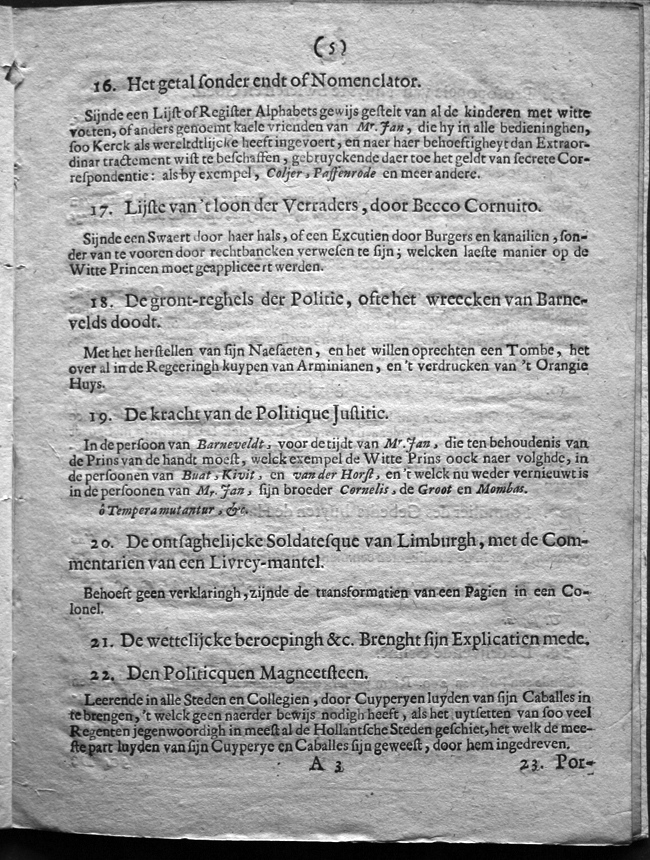 (5)
16. Het getal sonder endt of Nomenclator.
Sijnde een Lijst of Register Alphabets gewijs gestelt van al de kinderen met witte
voeten, of anders genoemt kaele vrienden van Mr. Jan, die hy in alle bedieninghen,
soo Kerck als wereltdtlijcke heeft ingevoert, en naer haer behoeftigheyt dan Extraor-
dinar tractement wist te beschaffen, gebruyckende daer toe het geldt van secrete Cor-
respondentie: als by exempel, Coljer, Paffenrode en meer andere.
17. Lijste van 't loon der Verraders, door Becco Cornuito.
Sijnde een Swaert door haer hals, of een Excutien door Burgers en kanailien, son-
der van te vooren door rechtbancken verwesen te sijn; welcken laeste manier op de
Witte Princen moet geappliceert werden.
18. De gront-reghels der Politie, ofte het wreecken van Barne-
velds doodt.
Met het herstellen van sijn Naesaeten, en het willen oprechten een Tombe, het
over al in de Regeeringh kuypen van Arminianen, en 't verdrucken van 't Orangie
Huys.
19. De kracht van de Politique Justitie.
In de persoon van Barneveldt, voor de tijdt van Mr. Jan, die ten behoudenis van
de Prins van de handt moest, welck exempel de Witte Prins oock naer volghde, in
de persoonen van Buat, Kivit, en van der Horst, en 't welck nu weder vernieuwt is
in de persoonen van Mr. Jan, sijn broeder Cornelis, de Groot en Mombas.
ô Tempera mutantur, &c.
20. De ontsaghelijcke Soldatesque van Limburgh, met de Com-
mentarien van een Livrey-mantel.
Behoeft geen verklaringh, zijnde de transformatien van een Pagien in een Co-
lonel.
21. De wettelijcke beroepingh &c. Brenght sijn Explicatien mede.
22. Den Politicquen Magneetsteen.
Leerende in alle Steden en Collegien, door Cuyperyen luyden van sijn Caballes in
te brengen, 't welck geen naerder bewijs nodigh heeft, als het uytsetten van soo veel
Regenten jegenwoordigh in meest al de Hollantsche Steden geschiet, het welk de mee-
ste part luyden van sijn Cuyperye en Caballes sijn geweest, door hem ingedreven.
A 3 23. Por-